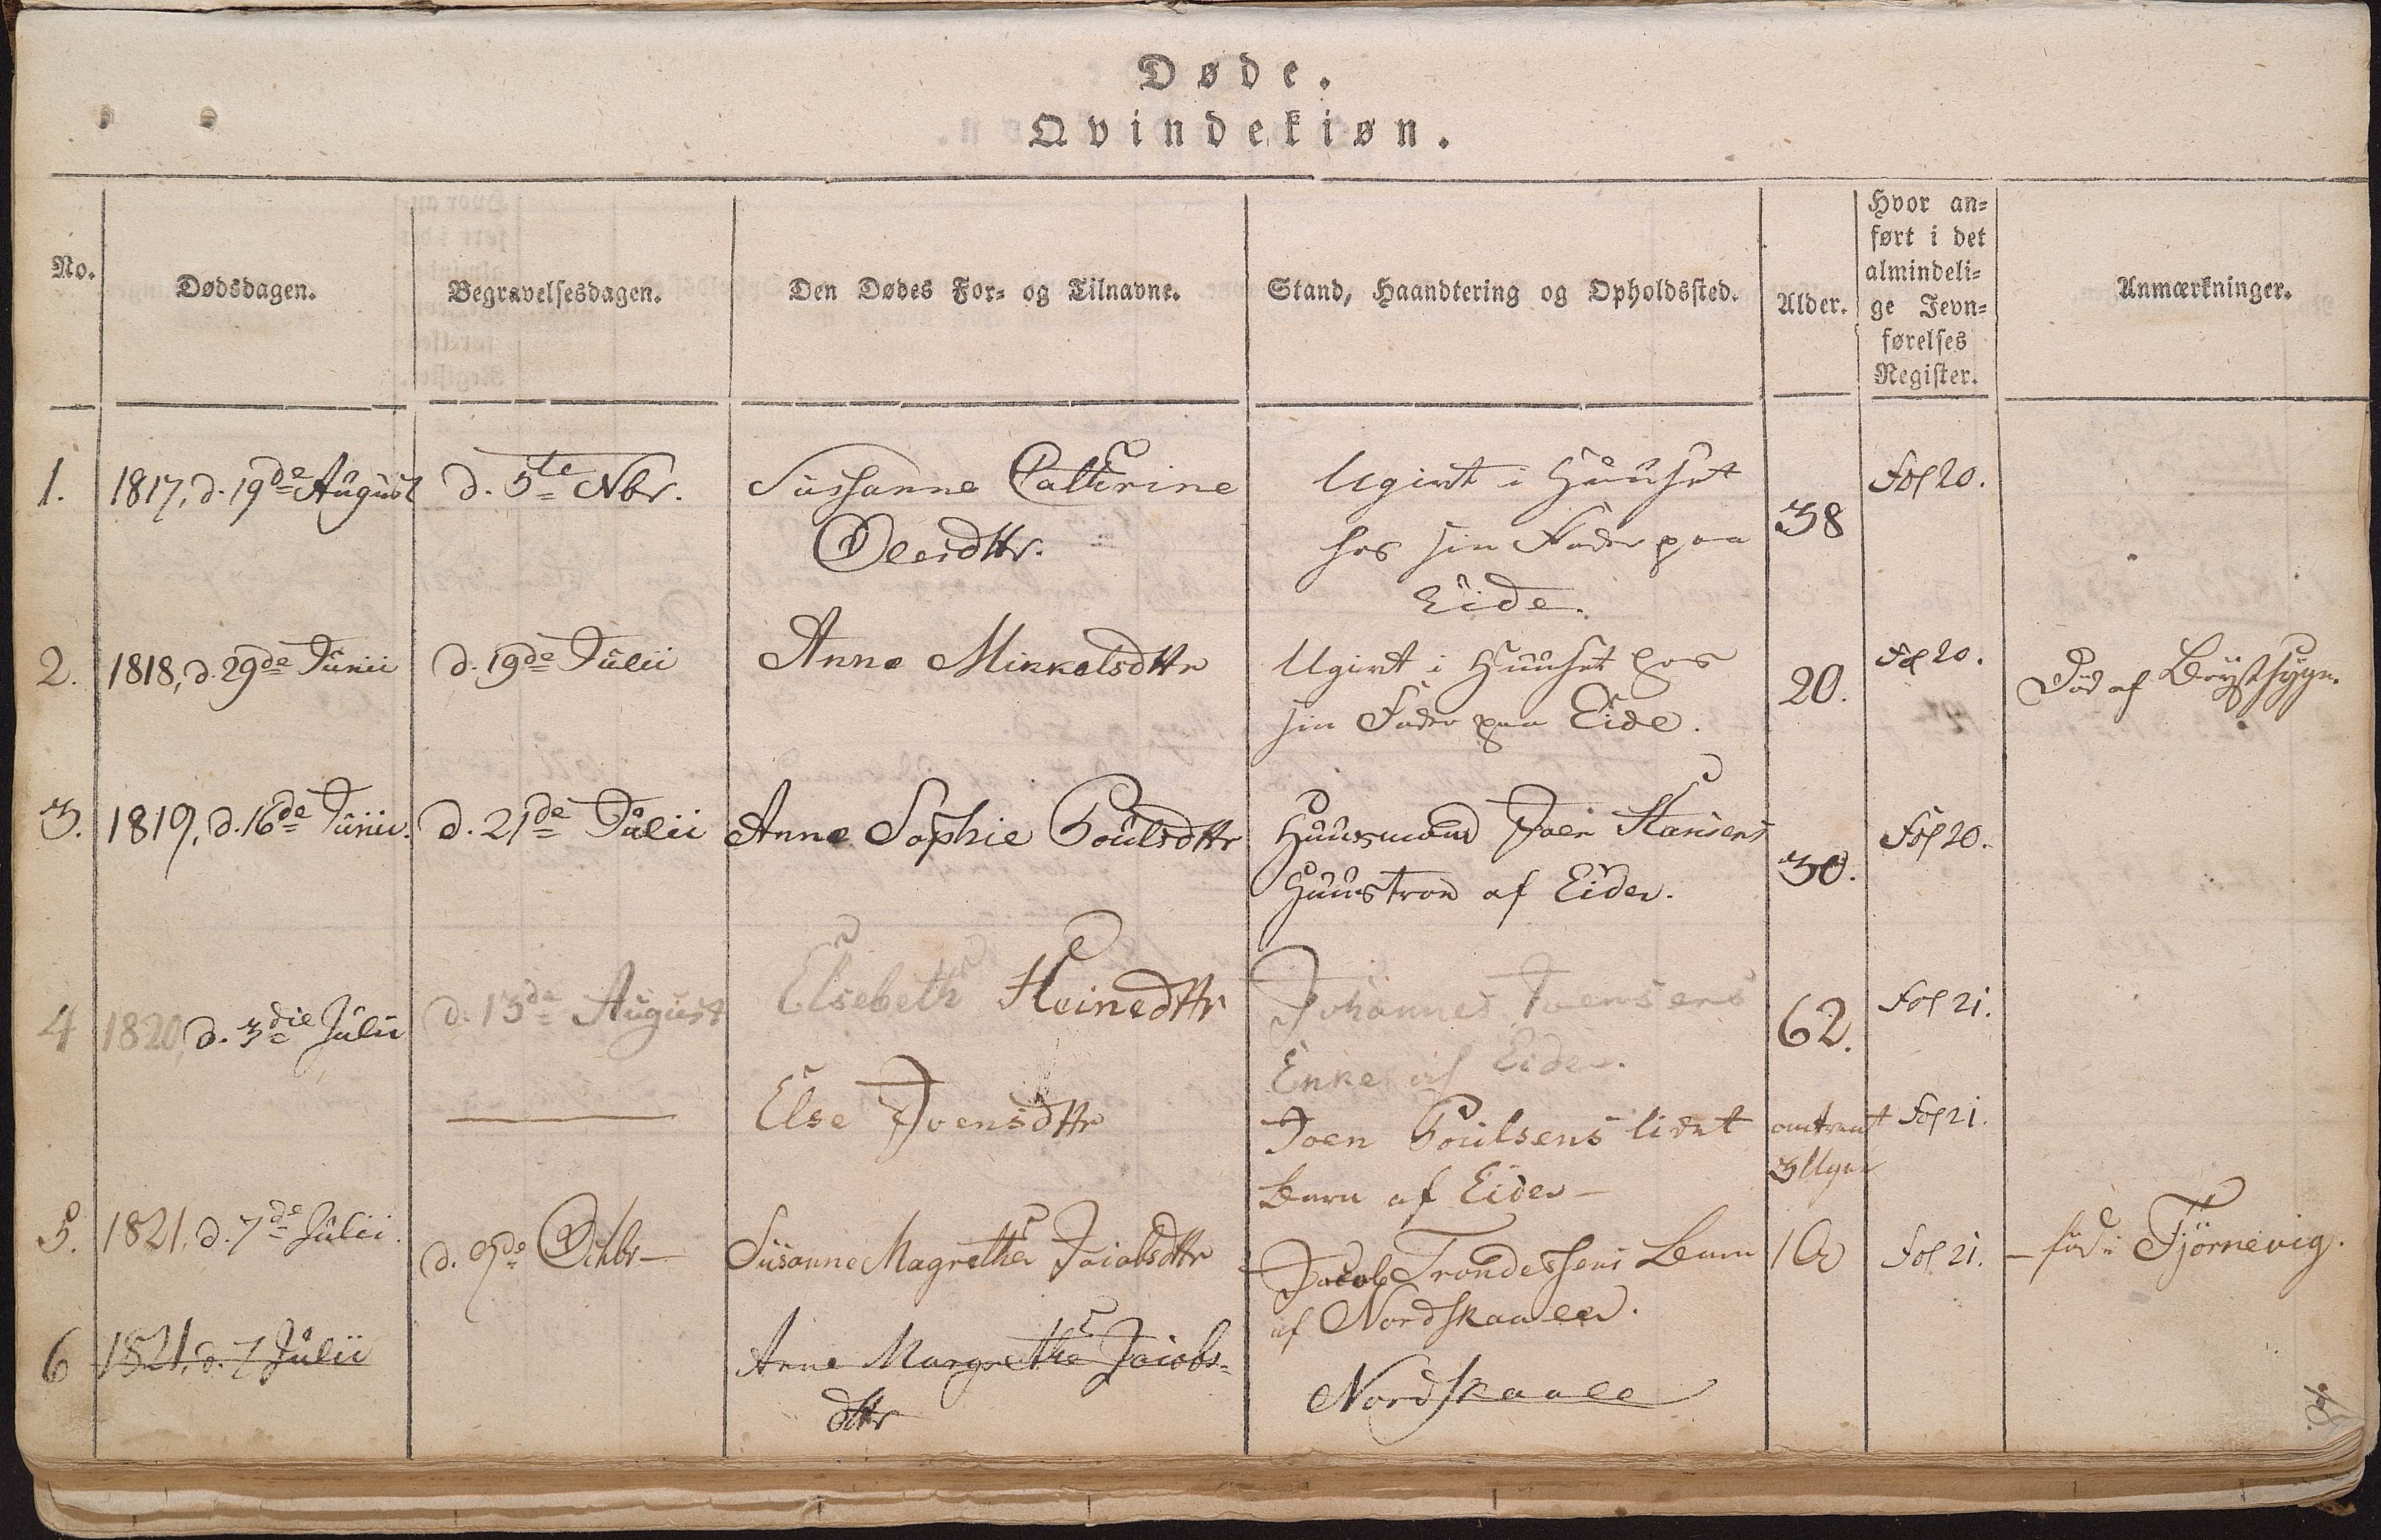 Døde.
Qvindekiøn.
No.
Dødsdagen.
Begravelsesdagen.
Den Dødes For- og Tilnavne.
Stand, Haandtering og Opholdssted.
Alder.
Hvor an-
ført i det
almindeli-
ge Jevn-
førelses
Register.
Anmærkninger.
1. 1817, d. 19de August d. 5te Nbr. Susanne Cathrine Ugivt i Huuset 38 Fol 20.
Olesdttr. hos sin Fader paa
Eide.
2. 1818, d. 29de Junii d. 19de Julii Anne Mikkelsdttr Ugivt i Huuset hos 20. Fol 20. Død af Brystsyge.
sin Fader paa Eide.
3. 1819, d. 16de Junii. d. 21de Julii Anne Sophie Poulsdttr Huusmand Joen Hansens 30. Fol 20.
Huustroe af Eide.
4 1820, d. 3die Julii d. 13de August Elsebeth Heinedttr Johannes Joensens 62. Fol 21.
Enke af Eide.
Else Joensdttr Joen Poulsens lidet omtrent Fol 21.
Barn af Eide - 3 Uger
5. 1821, d. 7de Julii. d. 9de Octbr - Susanne Magrethe Jacobsdttr Jacob Trondesens Barn Fol 21. - fød i Tjørnevig.
af Nordskaale.
6 1821, d. 7 Julii Anne Margrethe Jacobs-
dttr Nordskaale